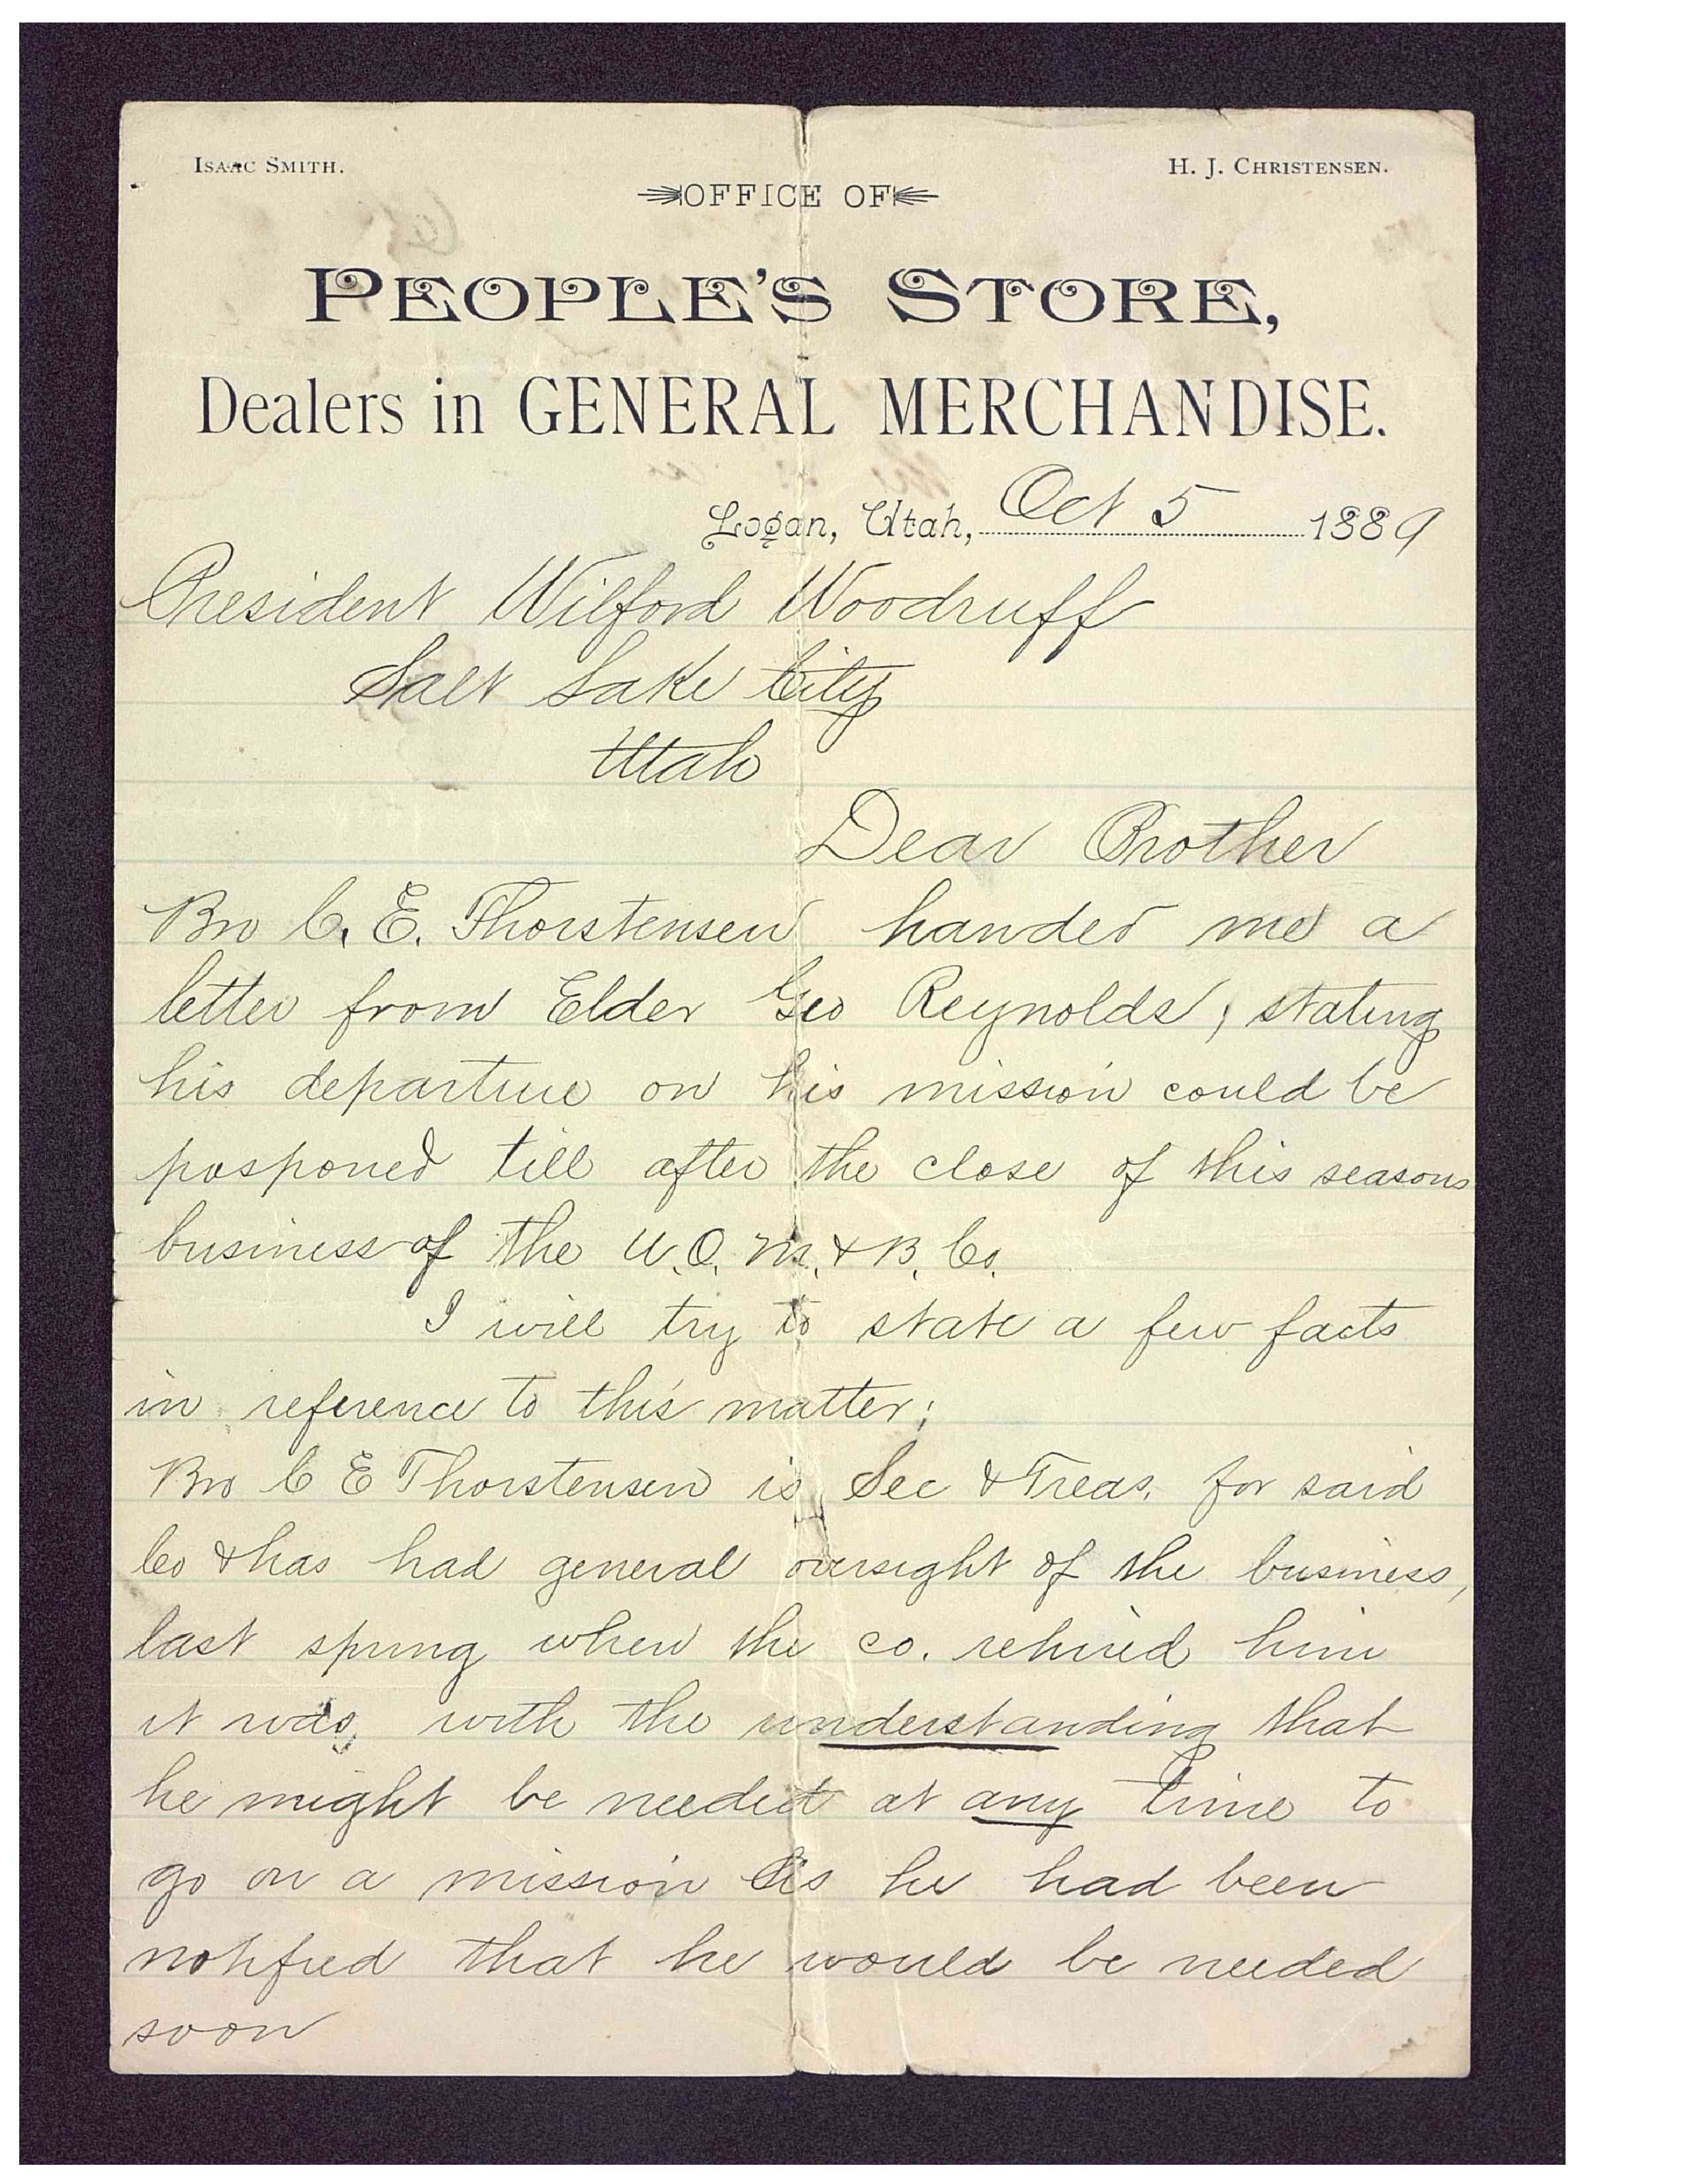 ISAAC SMITH.
H. J. CHRISTENSEN.
OFFICE OF
PEOPLE'S STORE,
Dealers in GENERAL MERCHANDISE.
Logan, Utah, Oct 5 1889
President Wilford Woodruff
Salt Lake City
Utah
Dear Brother
Bro C. E. Thorstensen handed me a
letter from Elder Geo Reynolds, stating
his departure on his mission could be
posponed till after the close of this seasons
business of the U. O. M. & B. Co.
I will try to state a few facts
in reference to this matter;
Bro C E Thorstensen is Sec & Treas. for said
Co & has had general oversight of the business,
last spring when the co. rehired him
it was, with the understanding that
he might be needed at any time to
go on a mission as he had been
notified that he would be needed
soon